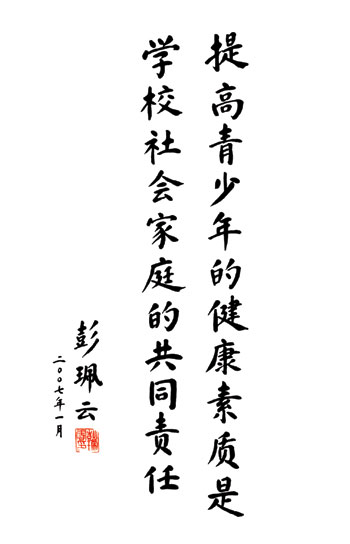 提高青少年的健康素质是
学校社会家庭的共同责任
彭珮云
二〇〇七年一月